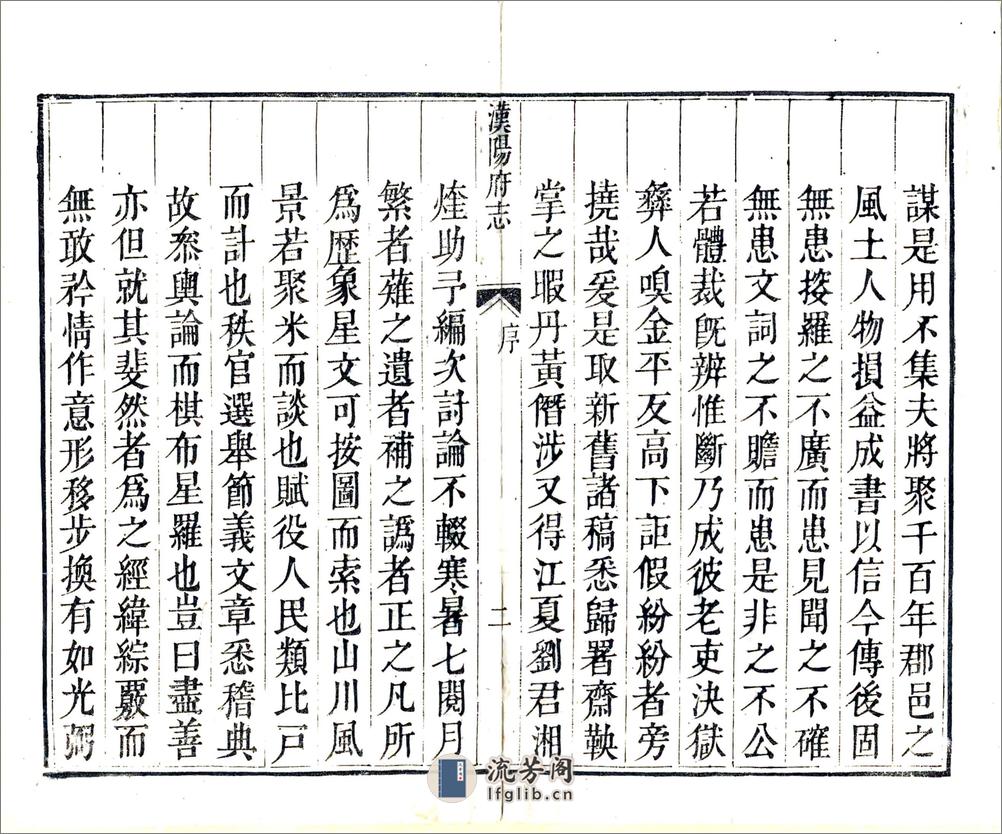 謀是用不集夫將聚千百年郡邑之
風土人物損益成書以信今傳後固
無患搜羅之不廣而患見聞之不確
無患文詞之不贍而患是非之不公
若體裁旣辨惟斷乃成彼老吏決獄
彜人嗅金平反高下詎假紛紛者旁
撓哉爰是取新舊諸稿悉歸署齋鞅
掌之暇丹黃僭涉又得江夏劉君湘
漢陽府志
序
二
煃助予編次討論不輟寒暑七閱月
繁者薙之遺者補之譌者正之凡所
爲歷象星文可按圖而索也山川風
景若聚米而談也賦役人民類比戸
而計也秩官選舉節義文章悉稽典
故叅輿論而棋布星羅也豈曰盡善
亦但就其斐然者爲之經緯綜覈而
無敢矜情作意形移步換有如光弼
流芳阁
lfglib.cn